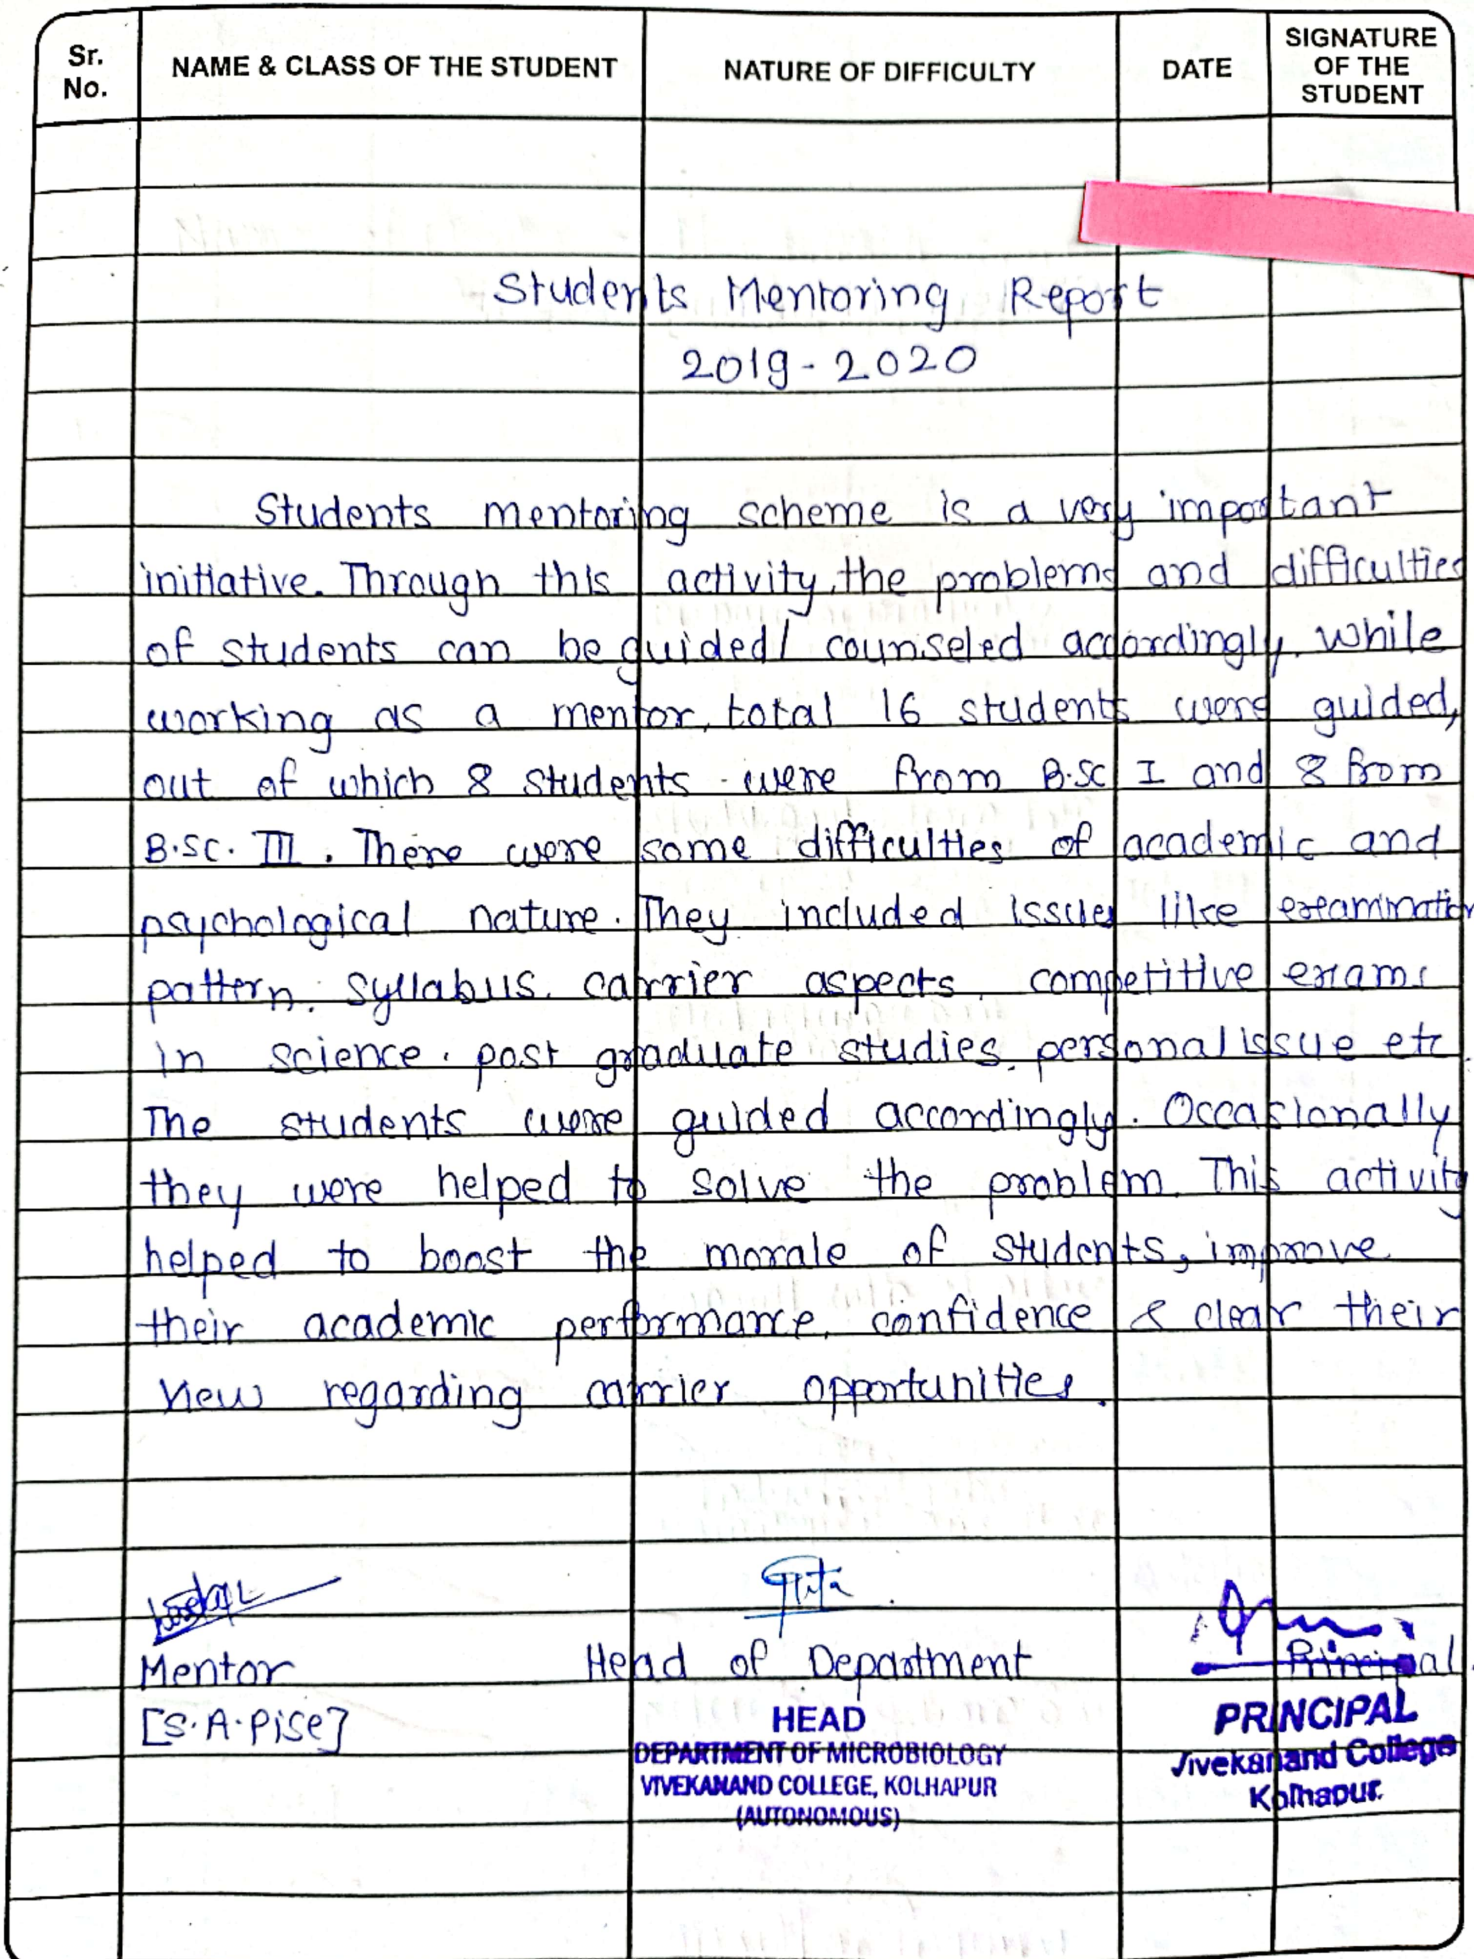 Sr. No.
NAME & CLASS OF THE STUDENT
NATURE OF DIFFICULTY
DATE
SIGNATURE OF THE STUDENT
Students Mentoring Report
2019-2020
Students mentoring scheme is a very important
initiative. Through this activity, the problems and difficulties
of students can be guided/ counseled accordingly. While
working as a mentor, total 16 students were guided,
out of which 8 students were from B.SC I and 8 from
B.SC. III. There were some difficulties of academic and
psychological nature. They included issues like examination
pattern, syllabus, carrier aspects, competitive exams
in science, post graduate studies, personal issue etc.
The students were guided accordingly. Occasionally
they were helped to solve the problem. This activity
helped to boost the morale of students, improve
their academic performance, confidence & clear their
view regarding carrier opportunities.
Mentor
Head of Department
Principal.
[S.A.Pise]
HEAD
DEPARTMENT OF MICROBIOLOGY
VIVEKANAND COLLEGE, KOLHAPUR
(AUTONOMOUS)
PRINCIPAL
Vivekanand College
Kolhapur.